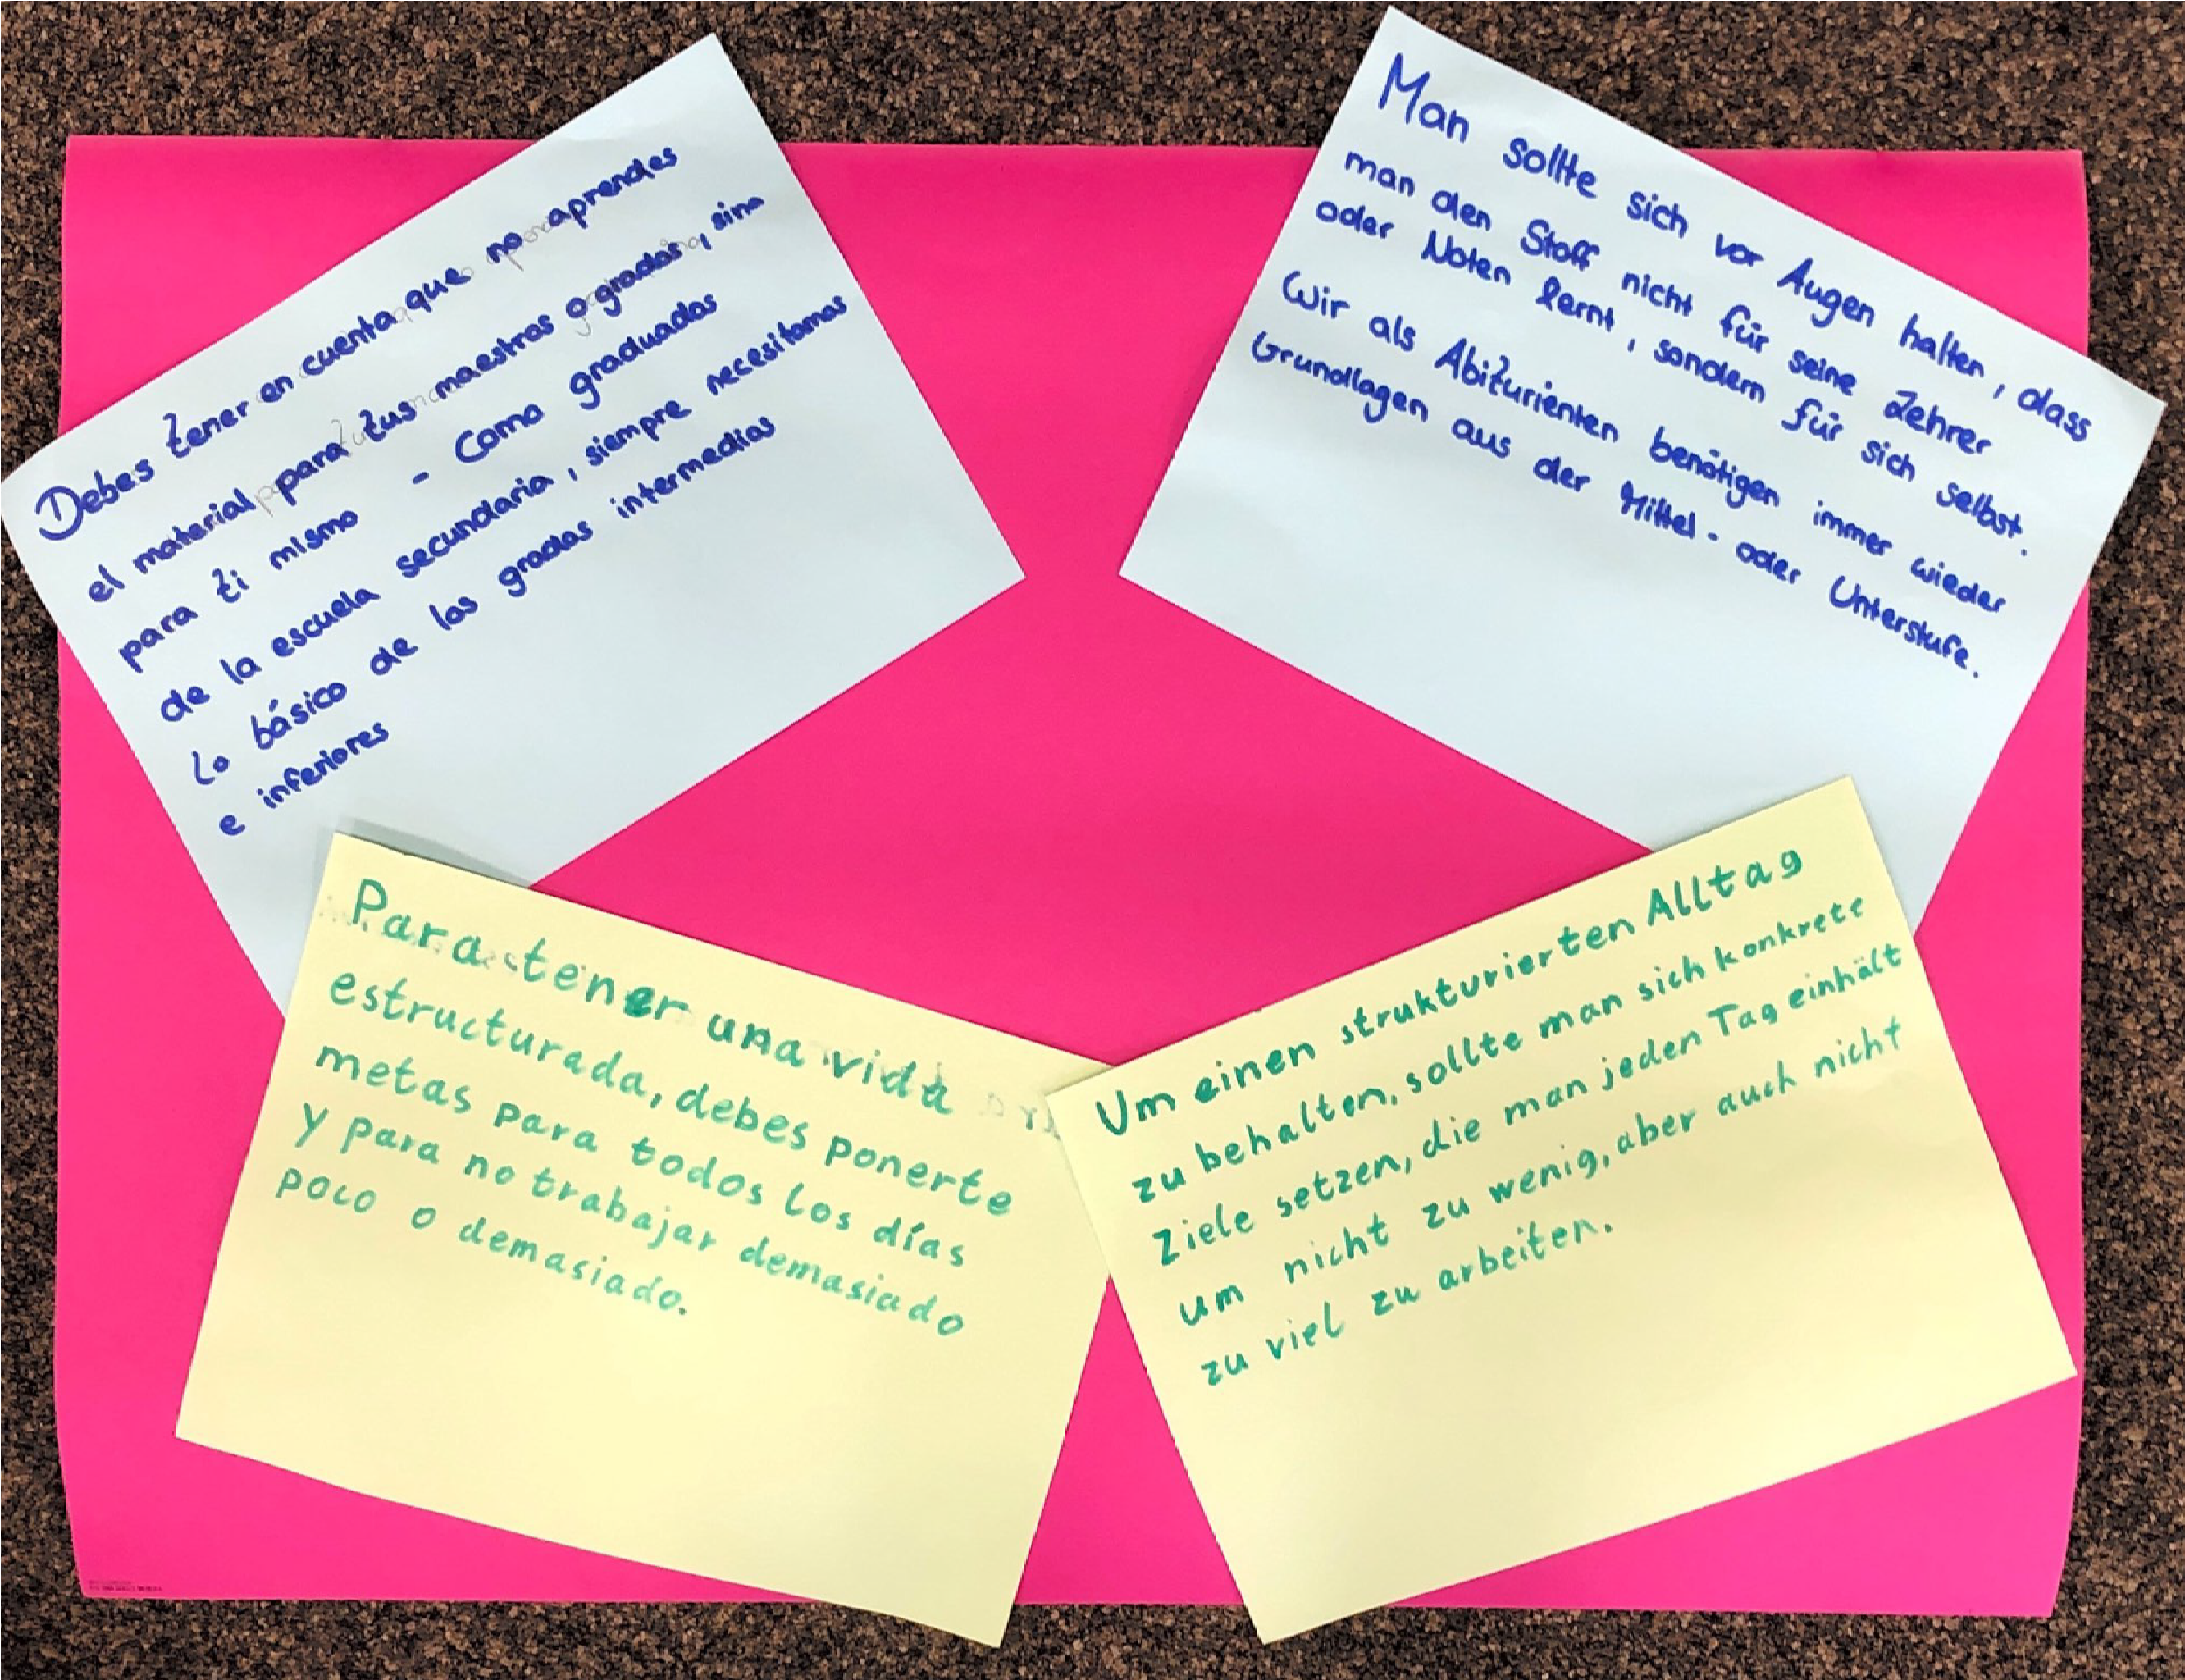 Debes tener en cuenta que no aprendes
el material para tus maestros o grados, sino
para ti mismo - Como graduados
de la escuela secundaria, siempre necesitamos
lo básico de los grados intermedios
e inferiores
Man sollte sich vor Augen halten, dass
man den Stoff nicht für seine Lehrer
oder Noten lernt, sondern für sich selbst.
Wir als Abiturienten benötigen immer wieder
Grundlagen aus der Mittel- oder Unterstufe.
Para tener una vida
estructurada, debes ponerte
metas para todos los días
y para no trabajar demasiado
poco o demasiado.
Um einen strukturierten Alltag
zu behalten, sollte man sich konkrete
Ziele setzen, die man jeden Tag einhält
um nicht zu wenig, aber auch nicht
zu viel zu arbeiten.